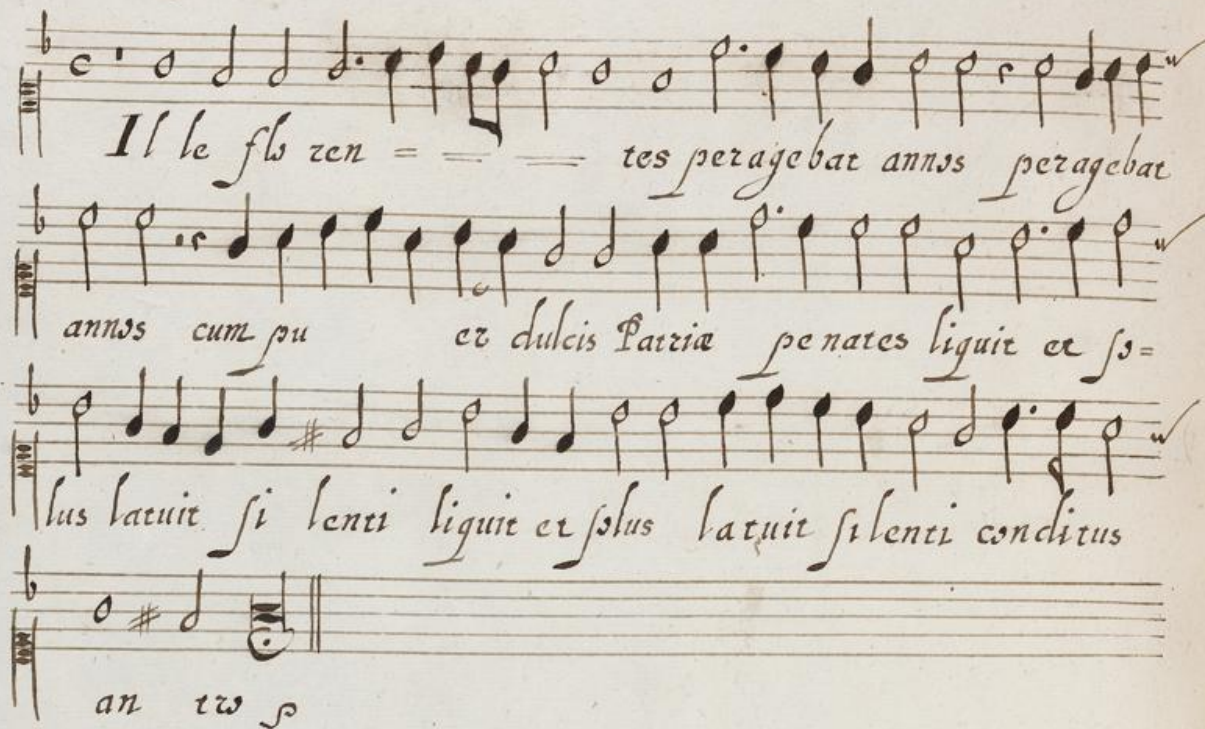 Il le flo ren = = = tes peragebat annos peragebat
annos cum pu er dulcis Patriæ penates liquit et so=
lus latuit si lenti liquit et solus latuit silenti conditus
an tro